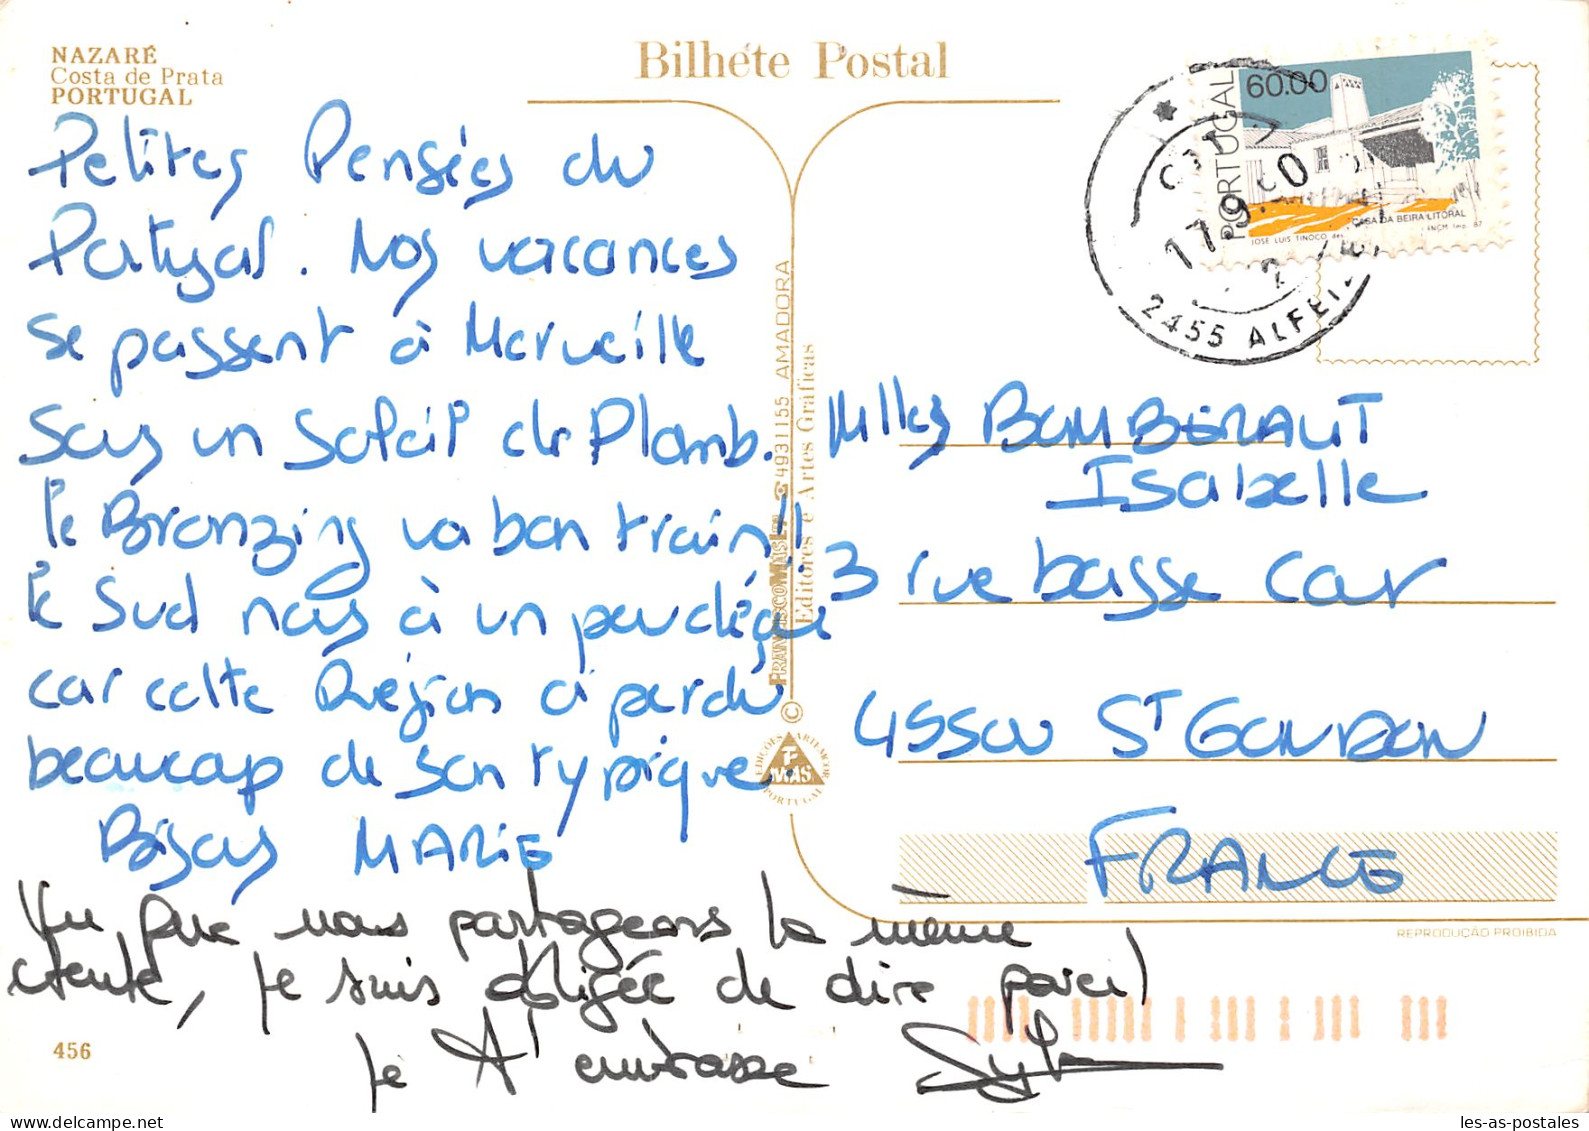 NAZARÉ
Costa de Prata
PORTUGAL
Bilhete Postal
Petites Pensées du
Portugal. Nos vacances
se passent à Merveille
Sous un Soleil de Plomb.
le Bronzing va bon train!!
le Sud nous à un peu déçu
car cette Région a perdu
beaucoup de son typique.
Bisous MARIE
Vu que nous partageons la même
tente, je suis obligée de dire pareil
je t'embrasse
456
PORTUGAL
60.00
CASA DA BEIRA LITORAL
JOSE LUIS TINOCO des.
INCM Imp. 87
17.9.90
2455 ALFEIZ
Mlles BOMBERAUT
Isabelle
3 rue basse cour
45500 ST GONDON
FRANCE
REPRODUÇÃO PROIBIDA
FRANCISCO MAS LDA
☎ 4931155 AMADORA
Editores e Artes Gráficas
©
EDIÇÕES ARTEMCOR
F
MAS
PORTUGAL
les-as-postales